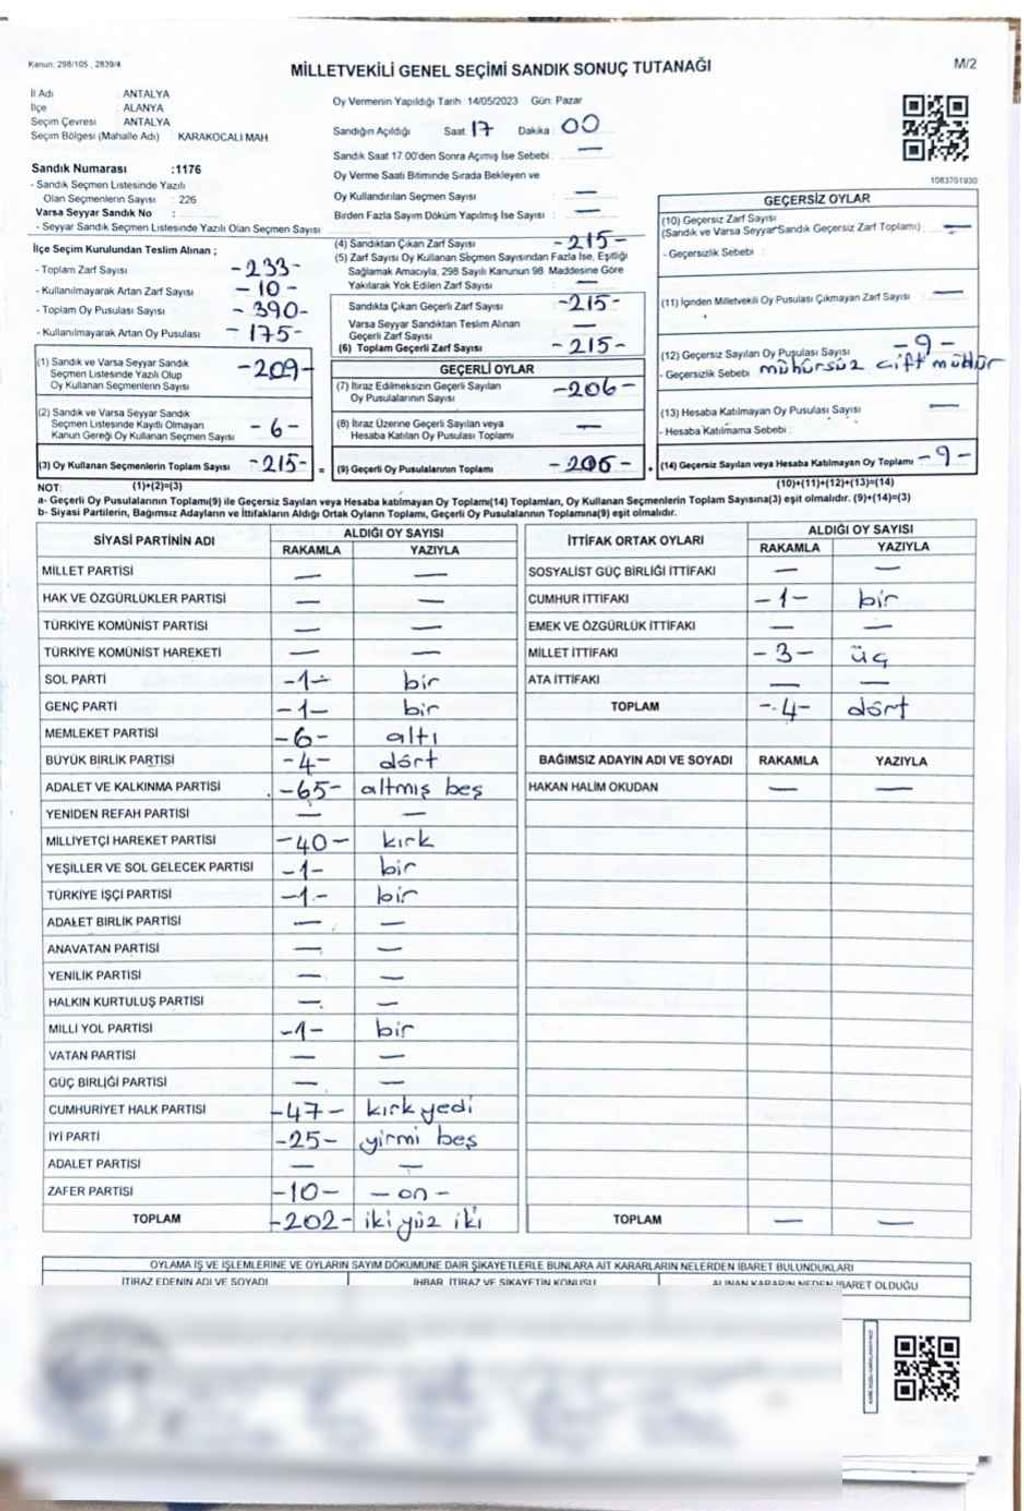 Kanun: 298/105 , 2839/4
MİLLETVEKİLİ GENEL SEÇİMİ SANDIK SONUÇ TUTANAĞI
M/2
İl Adı : ANTALYA
İlçe : ALANYA
Seçim Çevresi : ANTALYA
Seçim Bölgesi (Mahalle Adı) : KARAKOCALI MAH
Sandık Numarası :1176
- Sandık Seçmen Listesinde Yazılı
Olan Seçmenlerin Sayısı : 226
Varsa Seyyar Sandık No :
- Seyyar Sandık Seçmen Listesinde Yazılı Olan Seçmen Sayısı :
İlçe Seçim Kurulundan Teslim Alınan ;
- Toplam Zarf Sayısı -233-
- Kullanılmayarak Artan Zarf Sayısı -10-
- Toplam Oy Pusulası Sayısı -390-
- Kullanılmayarak Artan Oy Pusulası -175-
(1) Sandık ve Varsa Seyyar Sandık
Seçmen Listesinde Yazılı Olup
Oy Kullanan Seçmenlerin Sayısı -209-
(2) Sandık ve Varsa Seyyar Sandık
Seçmen Listesinde Kayıtlı Olmayan
Kanun Gereği Oy Kullanan Seçmen Sayısı -6-
(3) Oy Kullanan Seçmenlerin Toplam Sayısı -215- =
Oy Vermenin Yapıldığı Tarih :14/05/2023 Gün: Pazar
Sandığın Açıldığı Saat 17 Dakika : 00
Sandık Saat 17.00'den Sonra Açımış İse Sebebi : —
Oy Verme Saati Bitiminde Sırada Bekleyen ve
Oy Kullandırılan Seçmen Sayısı : —
Birden Fazla Sayım Döküm Yapılmış İse Sayısı : —
(4) Sandıktan Çıkan Zarf Sayısı -215-
(5) Zarf Sayısı Oy Kullanan Seçmen Sayısından Fazla İse, Eşitliği
Sağlamak Amacıyla, 298 Sayılı Kanunun 98. Maddesine Göre
Yakılarak Yok Edilen Zarf Sayısı : —
Sandıkta Çıkan Geçerli Zarf Sayısı -215-
Varsa Seyyar Sandıktan Teslim Alınan
Geçerli Zarf Sayısı —
(6) Toplam Geçerli Zarf Sayısı -215-
GEÇERLİ OYLAR
(7) İtiraz Edilmeksizin Geçerli Sayılan
Oy Pusulalarının Sayısı -206-
(8) İtiraz Üzerine Geçerli Sayılan veya
Hesaba Katılan Oy Pusulası Toplamı —
(9) Geçerli Oy Pusulalarının Toplamı -206-
1083701930
GEÇERSİZ OYLAR
(10) Geçersiz Zarf Sayısı
(Sandık ve Varsa Seyyar Sandık Geçersiz Zarf Toplamı) : —
- Geçersizlik Sebebi :
(11) İçinden Milletvekili Oy Pusulası Çıkmayan Zarf Sayısı : —
(12) Geçersiz Sayılan Oy Pusulası Sayısı -9-
- Geçersizlik Sebebi : mühürsüz çift mühür
(13) Hesaba Katılmayan Oy Pusulası Sayısı —
- Hesaba Katılmama Sebebi :
(14) Geçersiz Sayılan veya Hesaba Katılmayan Oy Toplamı -9-
NOT: (1)+(2)=(3)
(10)+(11)+(12)+(13)=(14)
a- Geçerli Oy Pusulalarının Toplamı(9) ile Geçersiz Sayılan veya Hesaba katılmayan Oy Toplamı(14) Toplamları, Oy Kullanan Seçmenlerin Toplam Sayısına(3) eşit olmalıdır. (9)+(14)=(3)
b- Siyasi Partilerin, Bağımsız Adayların ve İttifakların Aldığı Ortak Oyların Toplamı, Geçerli Oy Pusulalarının Toplamına(9) eşit olmalıdır.
SİYASİ PARTİNİN ADI ALDIĞI OY SAYISI
RAKAMLA YAZIYLA
MİLLET PARTİSİ — —
HAK VE ÖZGÜRLÜKLER PARTİSİ — —
TÜRKİYE KOMÜNİST PARTİSİ — —
TÜRKİYE KOMÜNİST HAREKETİ — —
SOL PARTİ -1- bir
GENÇ PARTİ -1- bir
MEMLEKET PARTİSİ -6- altı
BÜYÜK BİRLİK PARTİSİ -4- dört
ADALET VE KALKINMA PARTİSİ -65- altmış beş
YENİDEN REFAH PARTİSİ — —
MİLLİYETÇİ HAREKET PARTİSİ -40- kırk
YEŞİLLER VE SOL GELECEK PARTİSİ -1- bir
TÜRKİYE İŞÇİ PARTİSİ -1- bir
ADALET BİRLİK PARTİSİ — —
ANAVATAN PARTİSİ — —
YENİLİK PARTİSİ — —
HALKIN KURTULUŞ PARTİSİ — —
MİLLİ YOL PARTİSİ -1- bir
VATAN PARTİSİ — —
GÜÇ BİRLİĞİ PARTİSİ — —
CUMHURİYET HALK PARTİSİ -47- kırk yedi
İYİ PARTİ -25- yirmi beş
ADALET PARTİSİ — —
ZAFER PARTİSİ -10- -on-
TOPLAM -202- iki yüz iki
İTTİFAK ORTAK OYLARI ALDIĞI OY SAYISI
RAKAMLA YAZIYLA
SOSYALİST GÜÇ BİRLİĞİ İTTİFAKI — —
CUMHUR İTTİFAKI -1- bir
EMEK VE ÖZGÜRLÜK İTTİFAKI — —
MİLLET İTTİFAKI -3- üç
ATA İTTİFAKI — —
TOPLAM -4- dört
BAĞIMSIZ ADAYIN ADI VE SOYADI RAKAMLA YAZIYLA
HAKAN HALİM OKUDAN — —
TOPLAM — —
OYLAMA İŞ VE İŞLEMLERİNE VE OYLARIN SAYIM DÖKÜMÜNE DAİR ŞİKAYETLERLE BUNLARA AİT KARARLARIN NELERDEN İBARET BULUNDUKLARI
İTİRAZ EDENİN ADI VE SOYADI İHBAR, İTİRAZ VE ŞİKAYETİN KONUSU ALINAN KARARIN NEDEN İBARET OLDUĞU